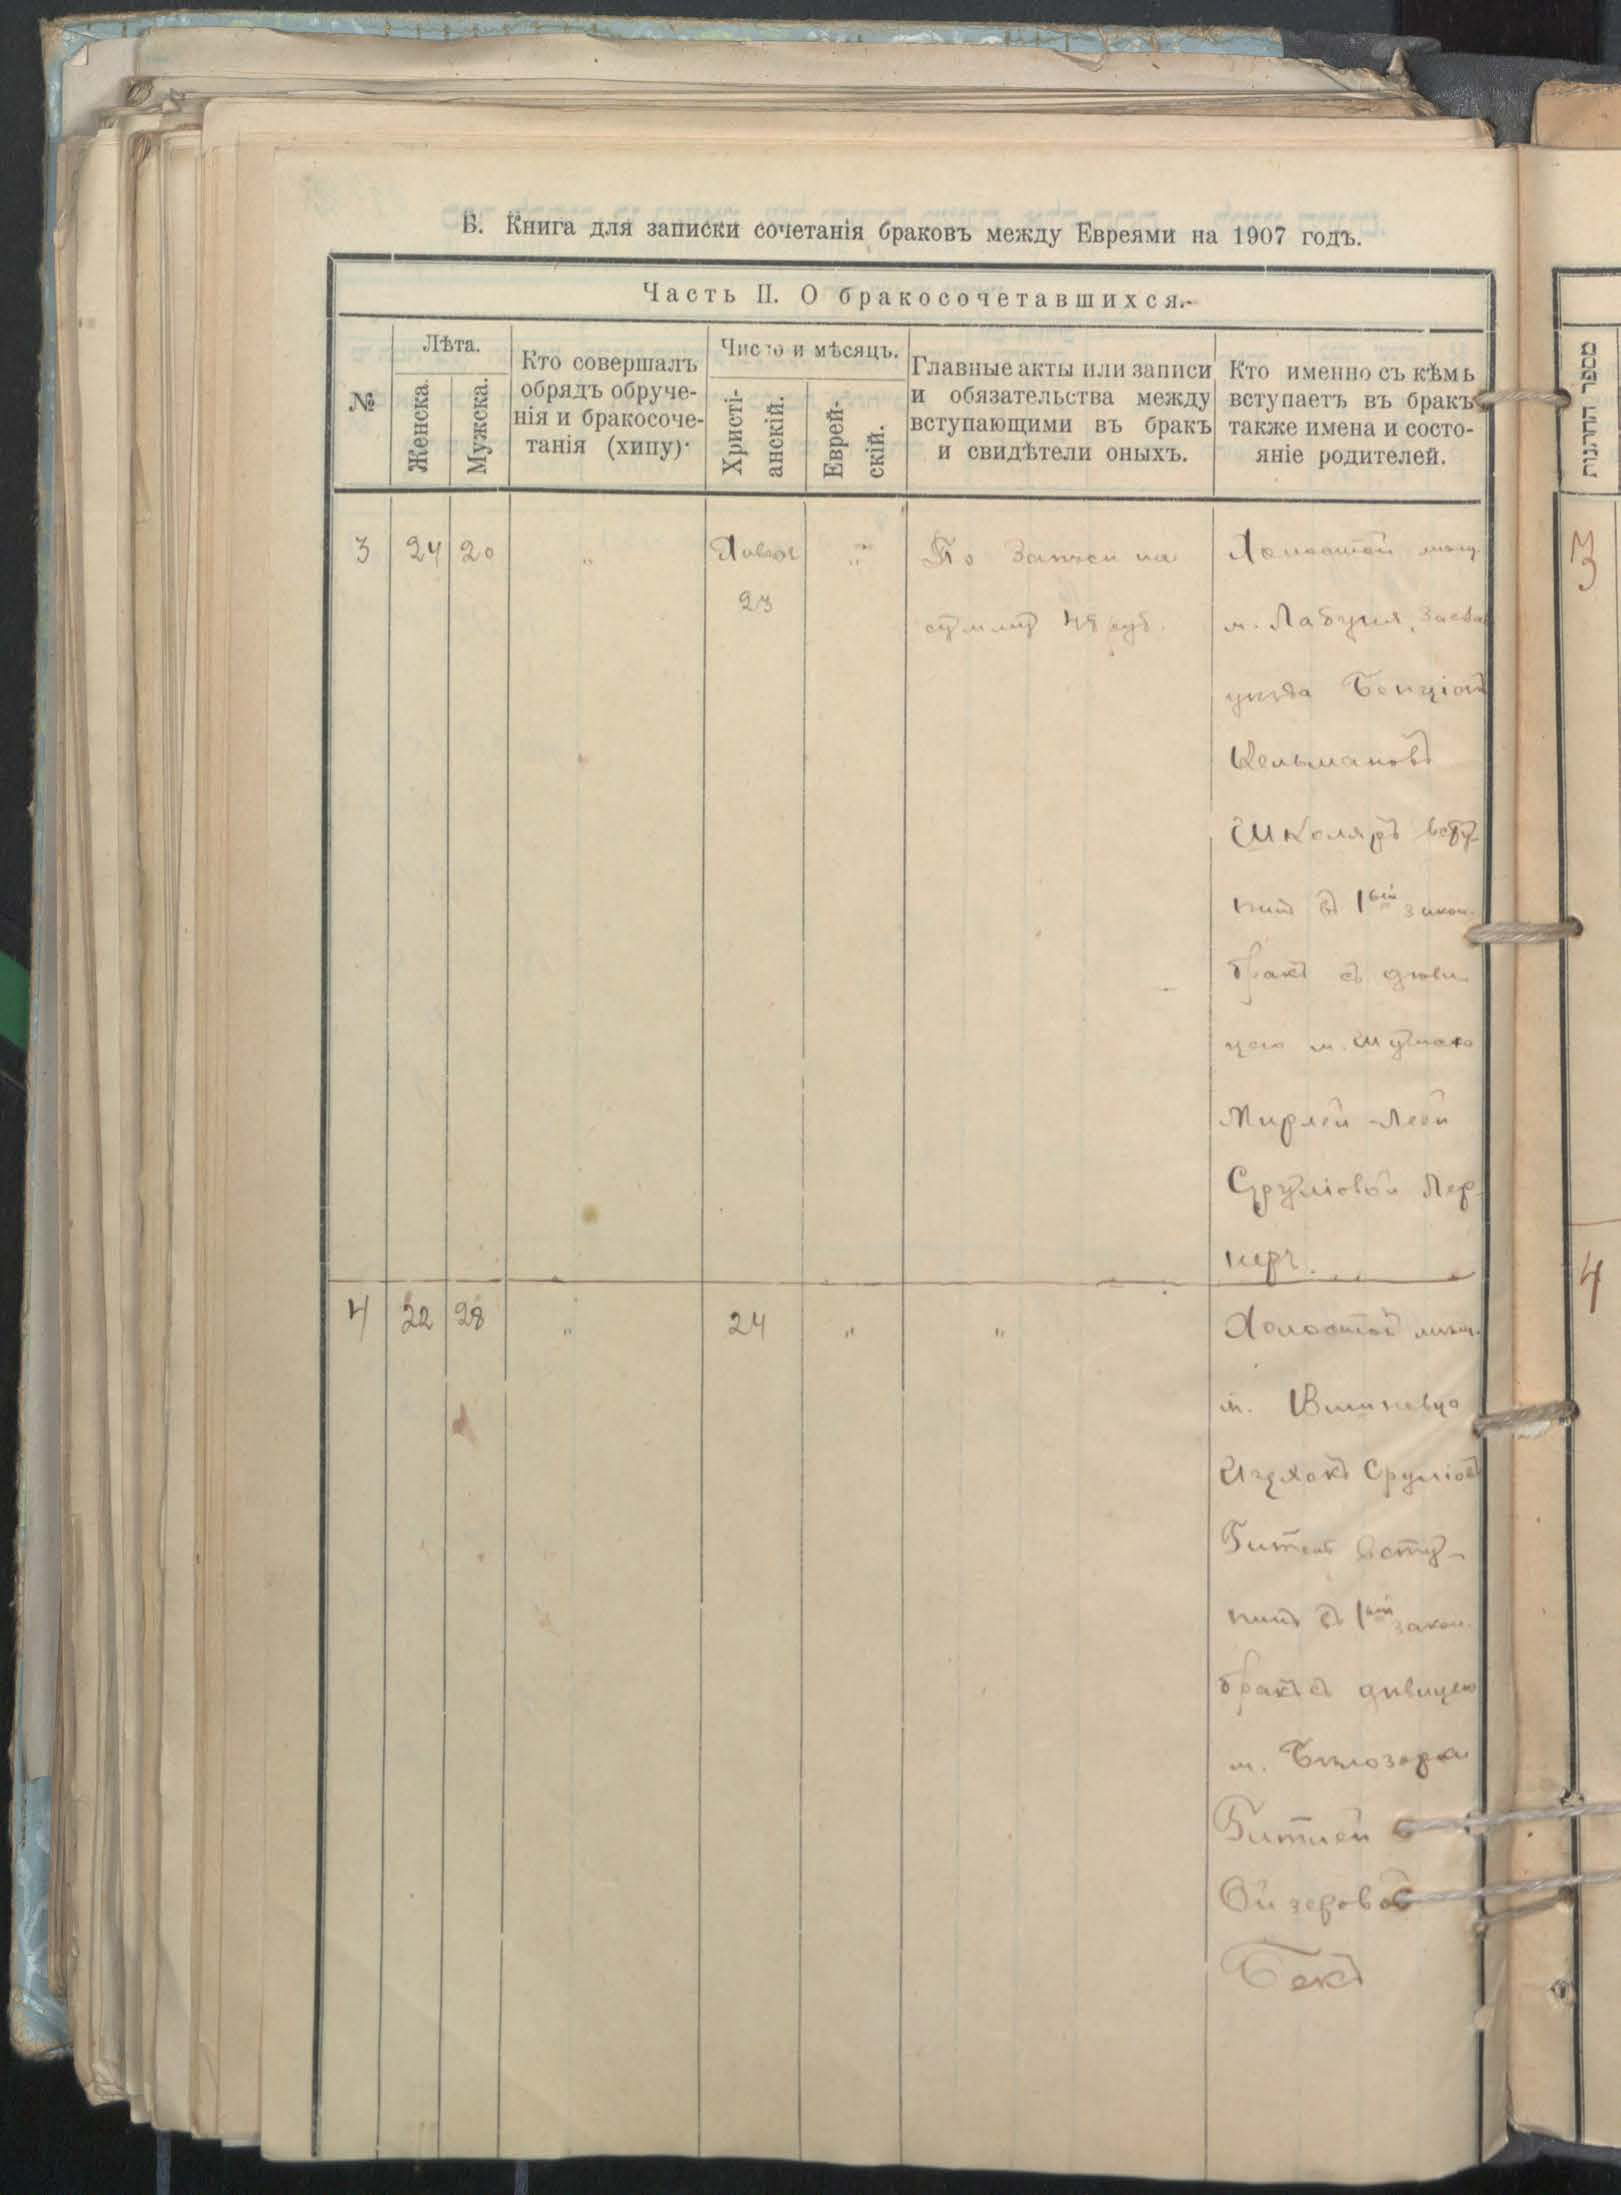 Б. Книга для записки сочетанія браковъ между Евреями на 1907 годъ.
Часть II. О бракосочетавшихся.
№
Лѣта.
Женска.
Мужска.
Кто совершалъ
обрядъ обруче-
нія и бракосоче-
танія (хипу).
Число и мѣсяцъ.
Христі-
анскій.
Еврей-
скій.
Главные акты или записи
и обязательства между
вступающими въ бракъ
и свидѣтели оныхъ.
Кто именно съ кѣмъ
вступаетъ въ бракъ
также имена и состо-
яніе родителей.
3
24
20
"
23
"
По Записи на
сумму 48 руб.
Холостой мѣщ.
м. Лабуня, Заслав
уѣзда Бенціонъ
Кельмановъ
Школяръ всту-
пилъ въ 1ый закон.
бракъ съ дѣви-
цею м. Шумска
Мирлей-Леей
Сруліовой Лер-
неръ.
4
22
28
"
24
"
"
Холостой мѣщ.
м. Вишневца
Ицхокъ Срулiовъ
всту-
пилъ въ 1ый закон.
бракъ съ дѣвицею
м. Бѣлозорки
Битлей
Ойзеровой
Бекъ
מספר החתונות
3
4